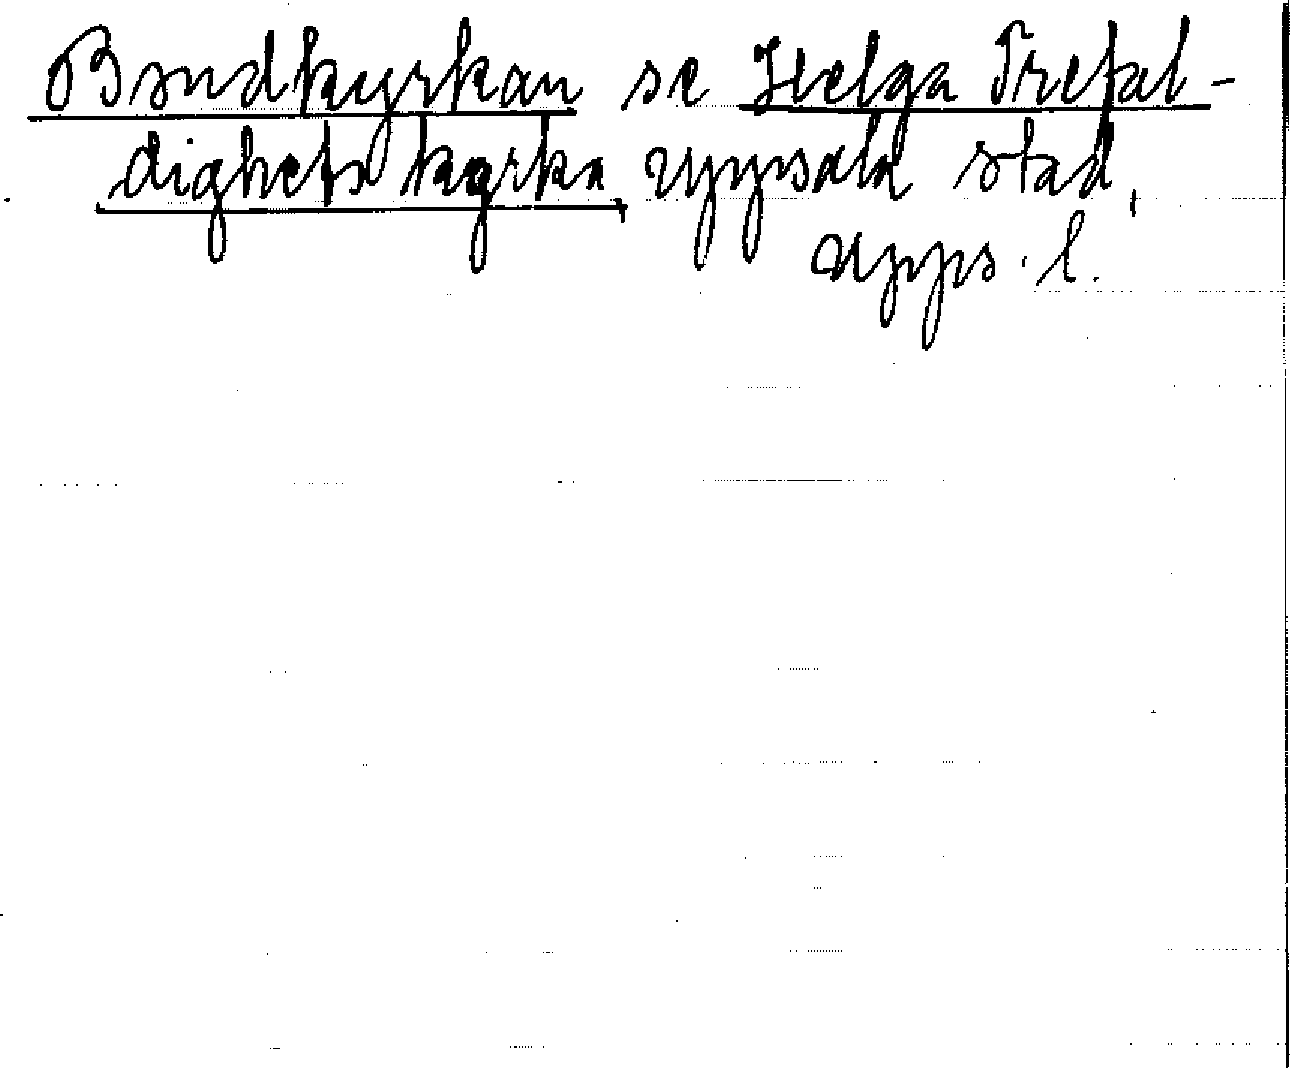 Bondkyrkan se Helga Trefal-
dighets kyrka Uppsala stad,
Upps. l.